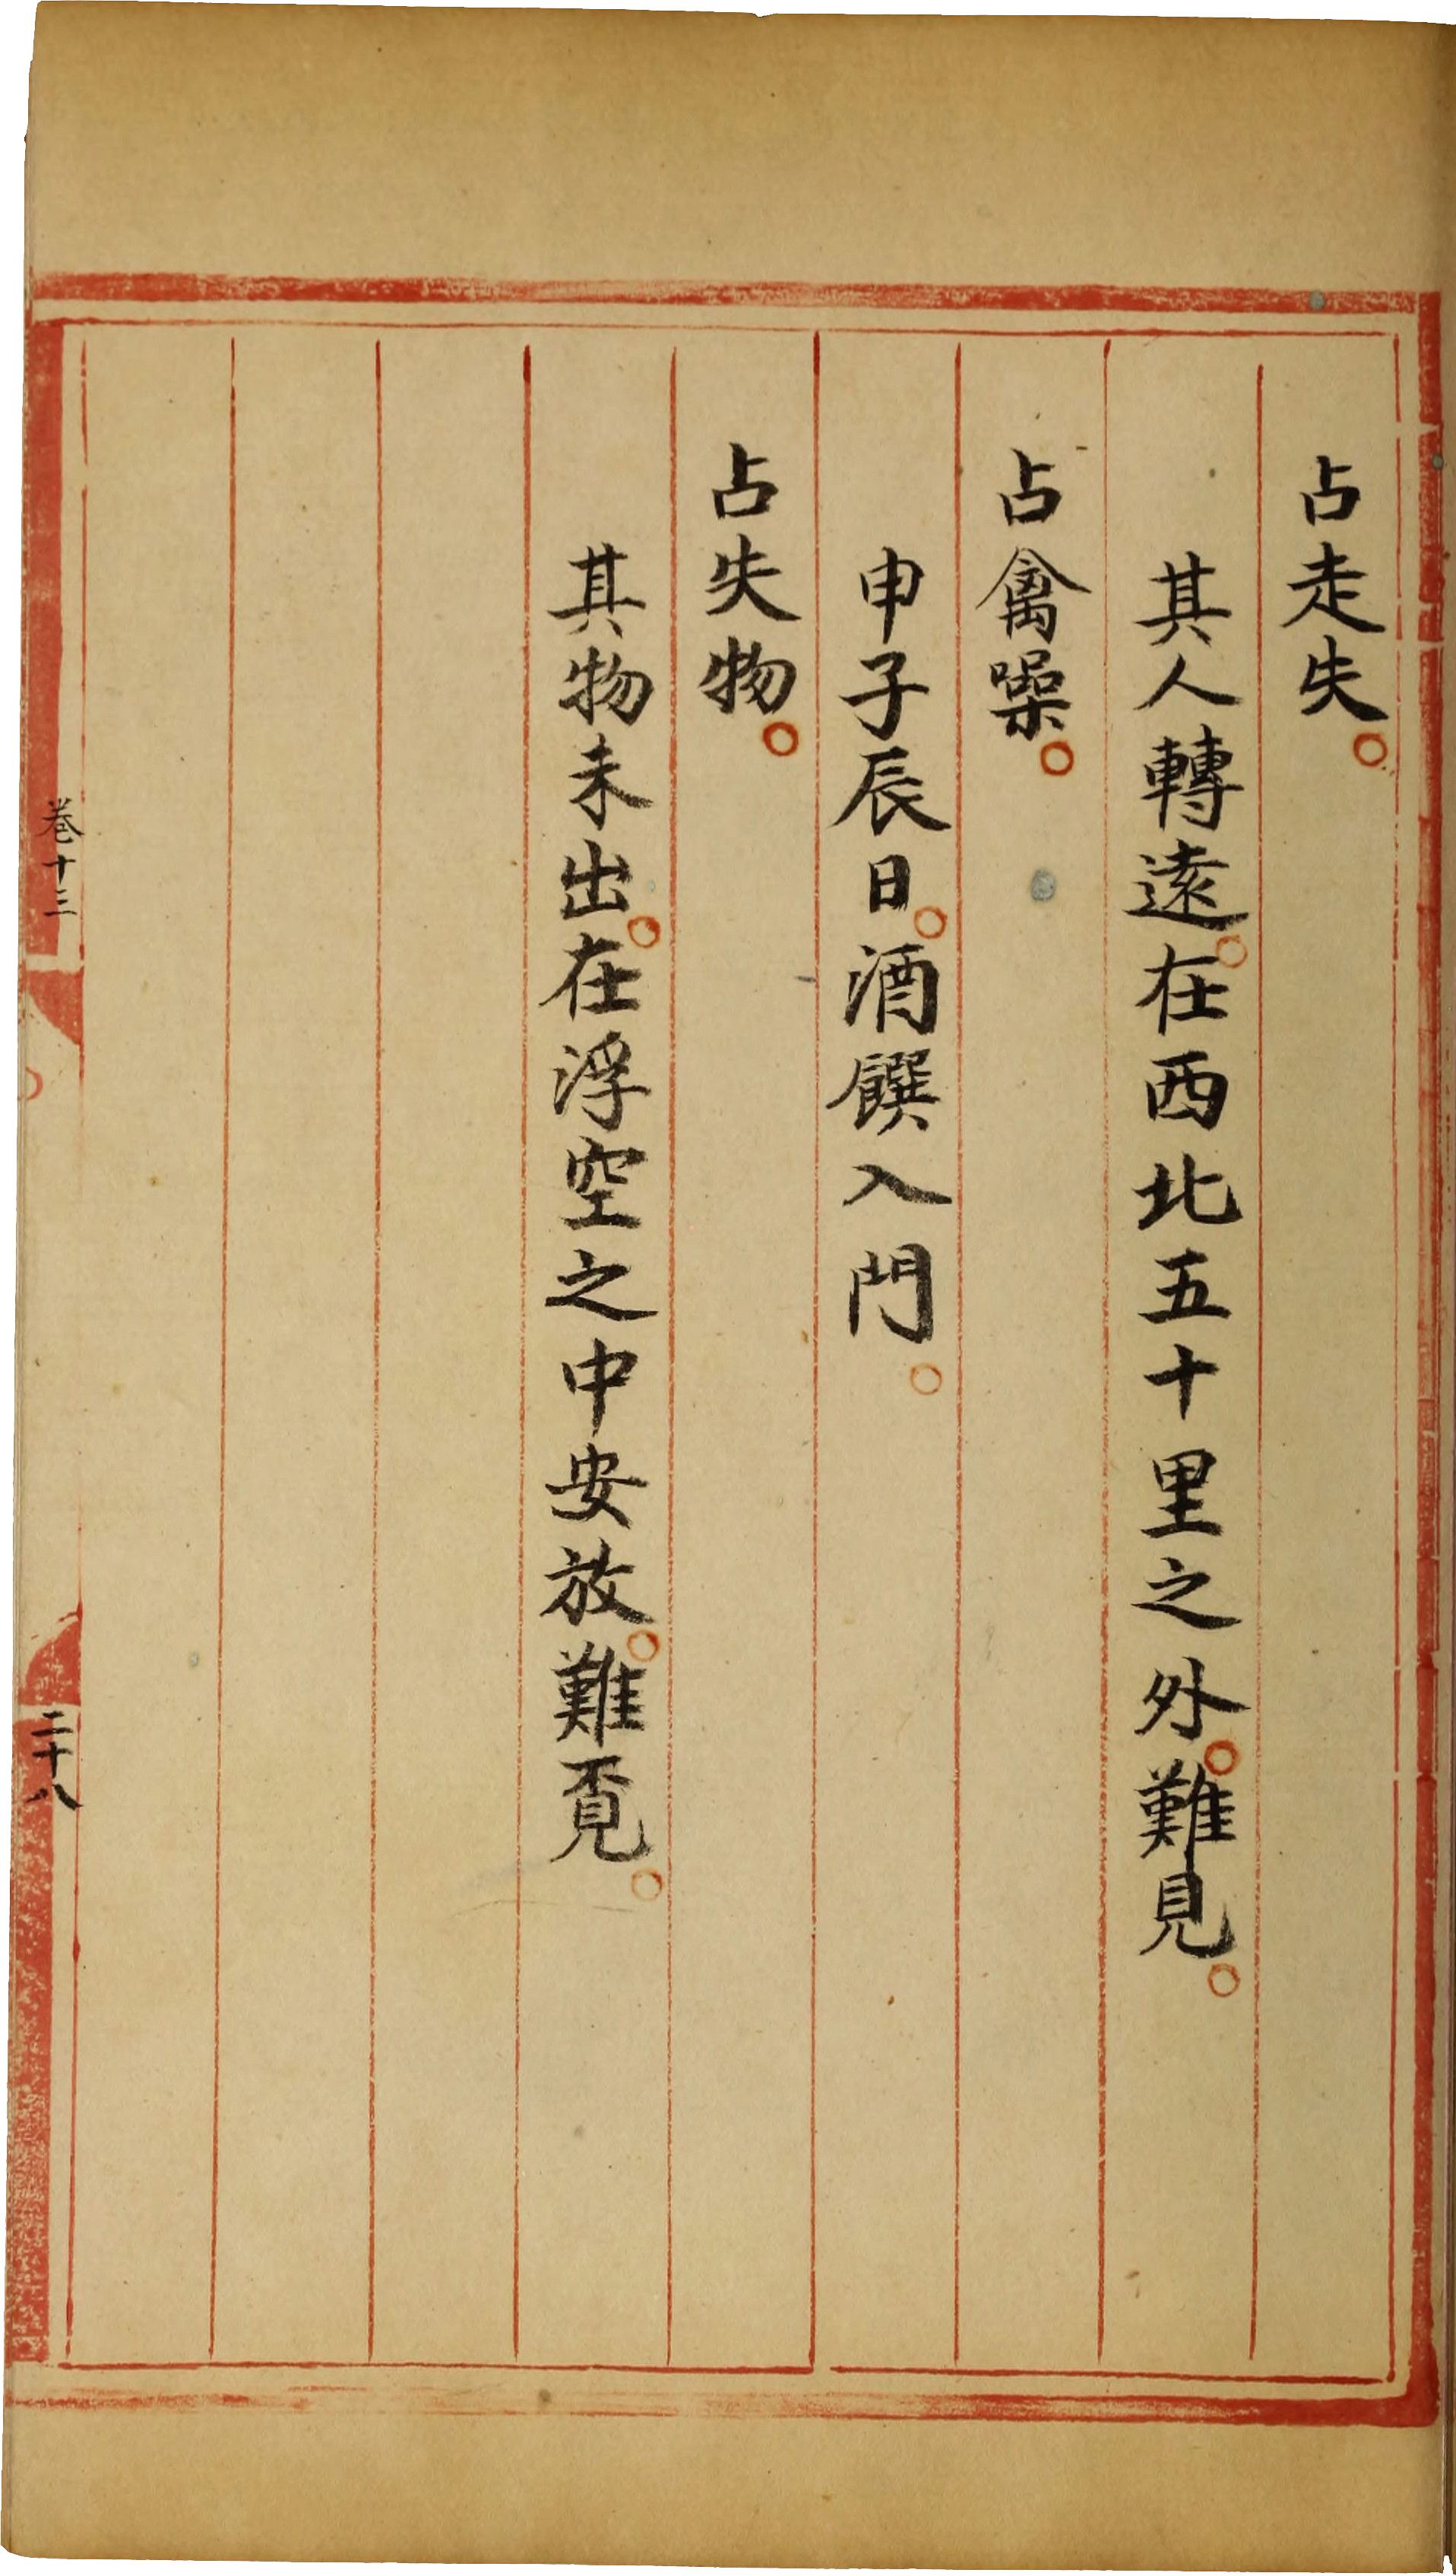 占走失。
其人轉遠。在西北五十里之外。難見。
占禽噪。
申子辰日。酒饌入門。
占失物。
其物未出。在浮空之中安放。難覔。
卷十三
二十八